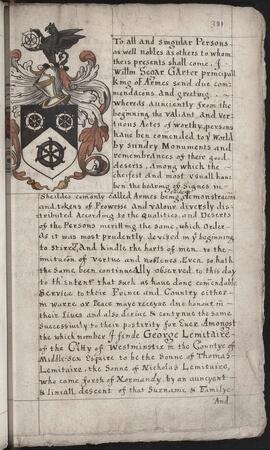 381
To all and singular Persons
as well nobles as others to whom
theis presents shall come, I
willm Segar Garter principall
king of Armes send due com
mendacons and greeting
whereas aunciently from the
beginning the valiant and ver
tuous Actes of worthy persons
haue ben comended to y World
by sundry Monuments and
remembrances of their good
deserts, Among which the
cheifest and most vsuall haue
ben the bearing of Signes in
Sheildes comonly called Armes being demonstracons
and tokens of Prowesse and Valour diversly dis
tributed According to the Qualities, and Deserts
of the Persons meriting the same, which Order
As it was most prudently devised in y beginning
to stirre And kindle the harts of men to the
imitacon of vertue and noblenes. Even so hath
the same been continually observed to this day
to th'intent that such as haue done comendable
Service to their Prince and Country either
in warre or Peace may receyue due honour in
their liues and also deriue & contynue the same
successiuely to their posterity for Euer Amongst
the which nomber I finde George Lemitaire
of the Citty of Westminster in the Countye of
Middlesex Esquire to be the Sonne of Thomas
Lemitaire, the Sonne of Nicholas Lemitaire,
who came forth of Normandy by an auncyent
& lineall descent of that Surname & familye
And